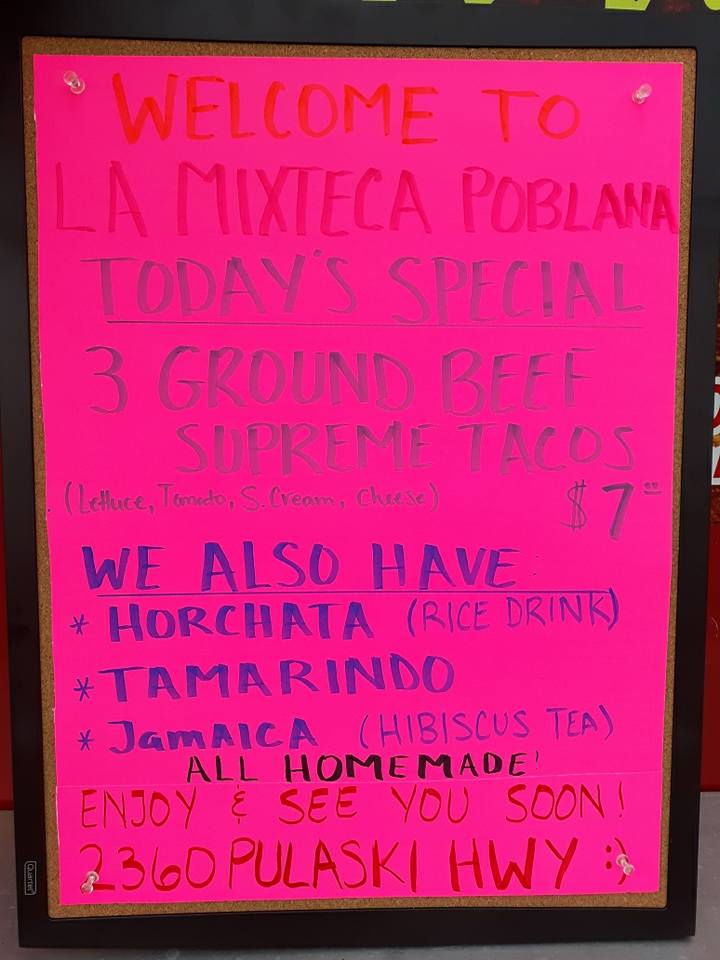 WELCOME TO
LA MIXTECA POBLANA
TODAY'S SPECIAL
3 GROUND BEEF
SUPREME TACOS
(Lettuce, Tomato, S. Cream, Cheese)
$7
WE ALSO HAVE:
* HORCHATA (RICE DRINK)
* TAMARINDO
* JamAICA (HIBISCUS TEA)
ALL HOMEMADE!
ENJOY & SEE YOU SOON!
2360 PULASKI HWY :)
Quartet